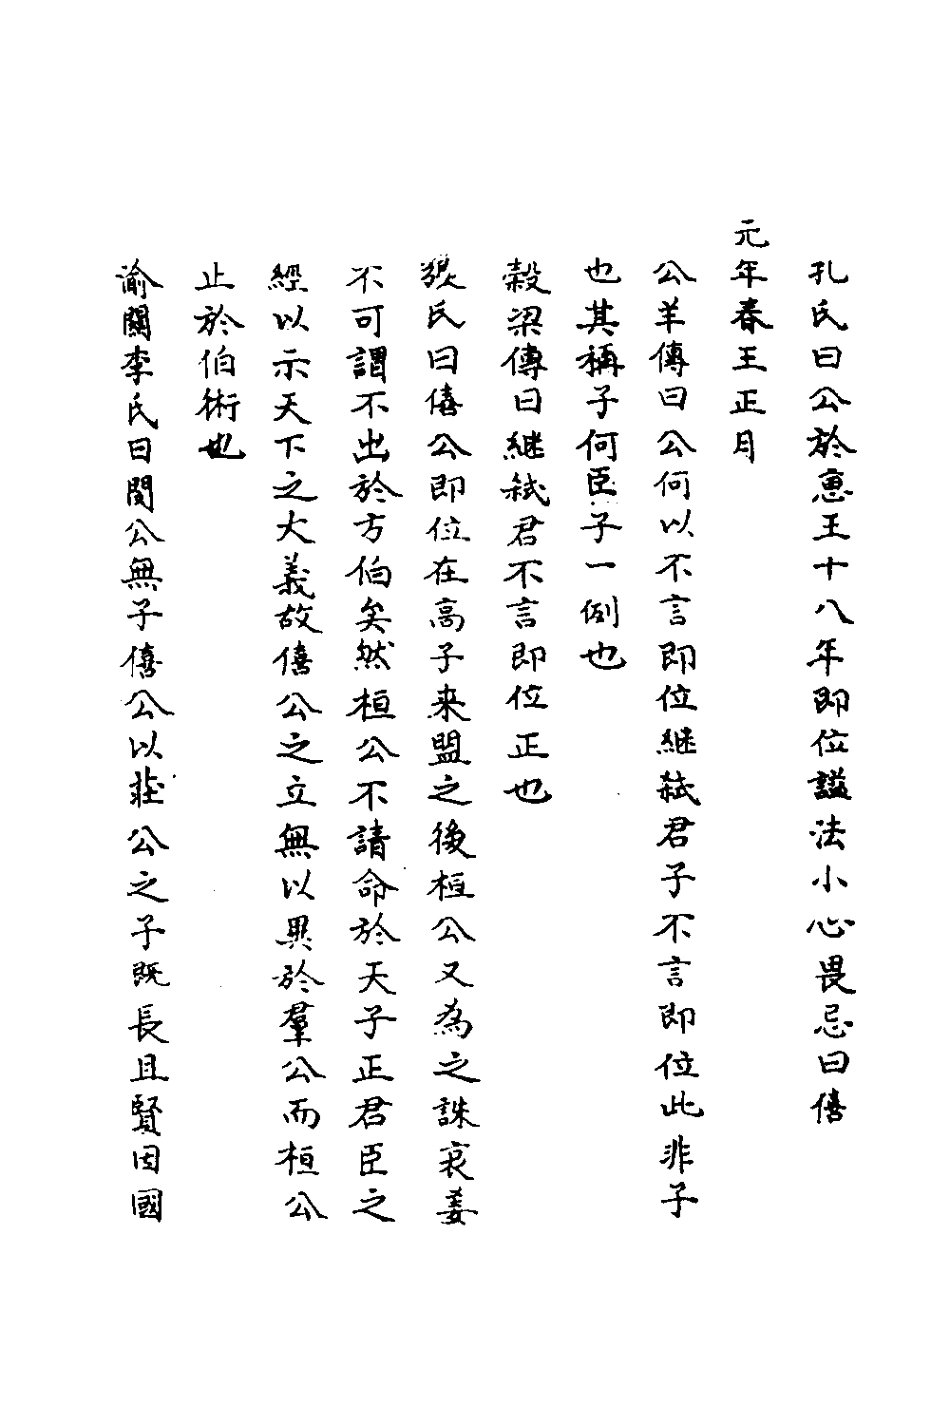 孔氏曰公於惠王十八年即位諡法小心畏忌曰僖
元年春王正月
公羊傳曰公何以不言即位繼弑君子不言即位此非子
也其稱子何臣子一例也
榖梁傳曰継弑君不言即位正也
氏曰僖公即位在高子来盟之後桓公又為之誅哀姜
不可謂不出於方伯矣然桓公不請命於天子正君臣之
經以示天下之大義故僖公之立無以異於羣公而桓公
止於伯術也
渝關李氏曰閔公無子僖公以莊公之子既長且賢因國